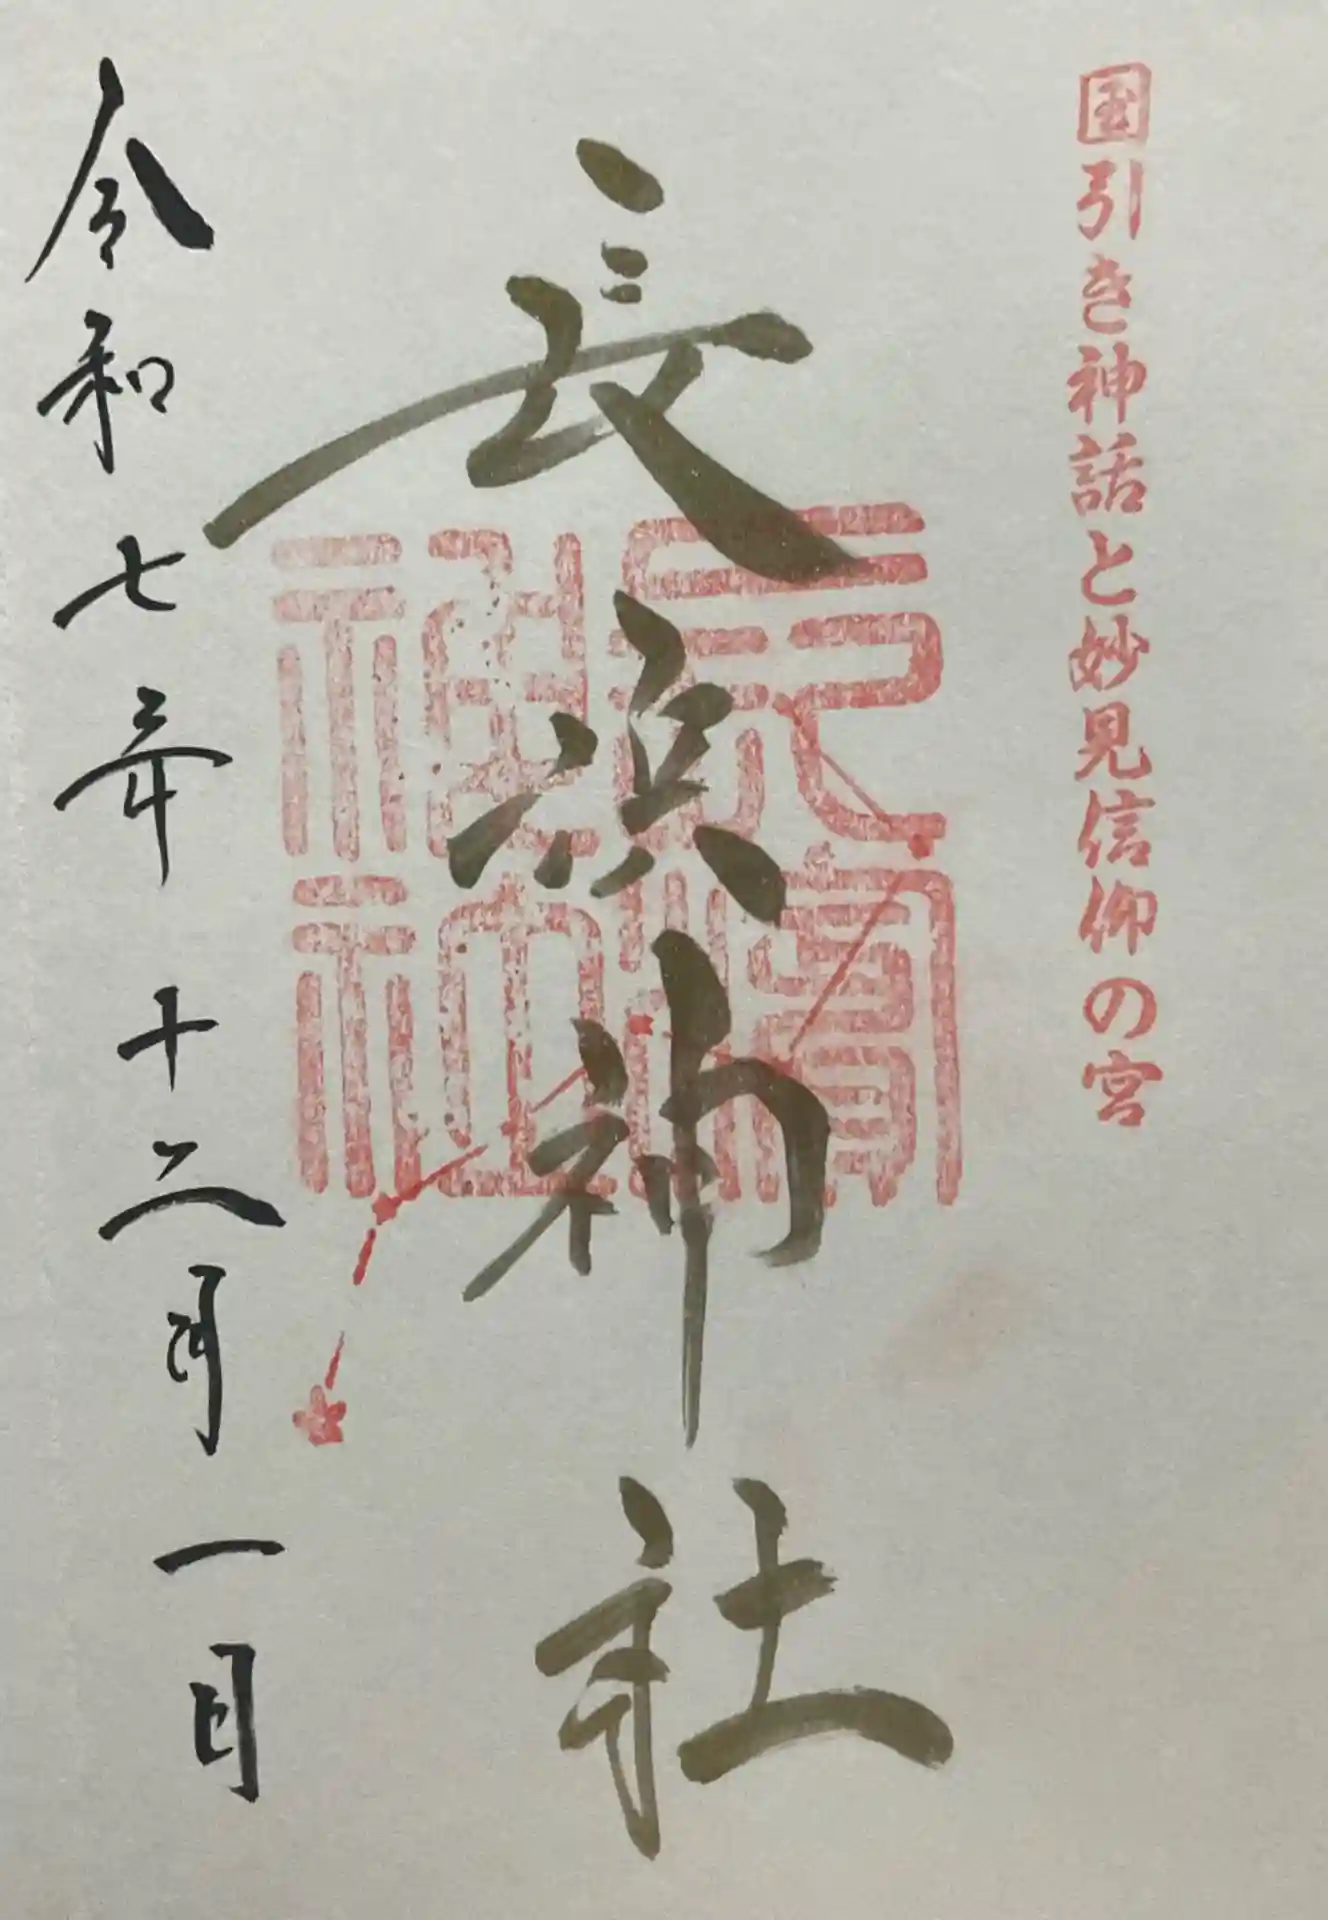 国引き神話と妙見信仰の宮
長浜神社
長濱神社
令和七年十二月一日